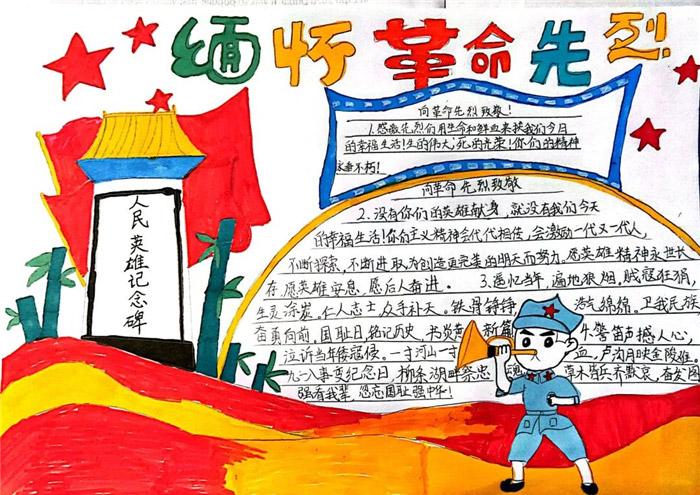 缅怀革命先烈
向革命先烈致敬!
1.感激先烈们用生命和鲜血来换我们今日
的幸福生活!生的伟大,死的光荣!你们的精神
永垂不朽!
向革命先烈致敬
2、没有你们的英雄献身,就没有我们今天
的幸福生活!你们主义精神会代代相传,会激励一代又一代人,
不断探索,不断进取为创造更完美的明天而努力,愿英雄精神永世长
存,愿英雄安息,愿后人奋进。 3、遥忆当年,遍地狼烟,贼寇狂猖,
生灵涂炭。仁人志士,众手补天。铁骨铮铮 浩气绵绵。卫我民族
奋勇向前,国耻日,铭记历史,书炎黄 新篇 4、警笛声撼人心,
泣诉当年倭寇侵。一寸河山一寸 血,卢沟月映金陵
九一八事变纪念日,柳条湖畔祭忠 魂 草木皆兵齐默哀,奋发图
强看我辈,忽忘国耻强中华!
人民英雄记念碑